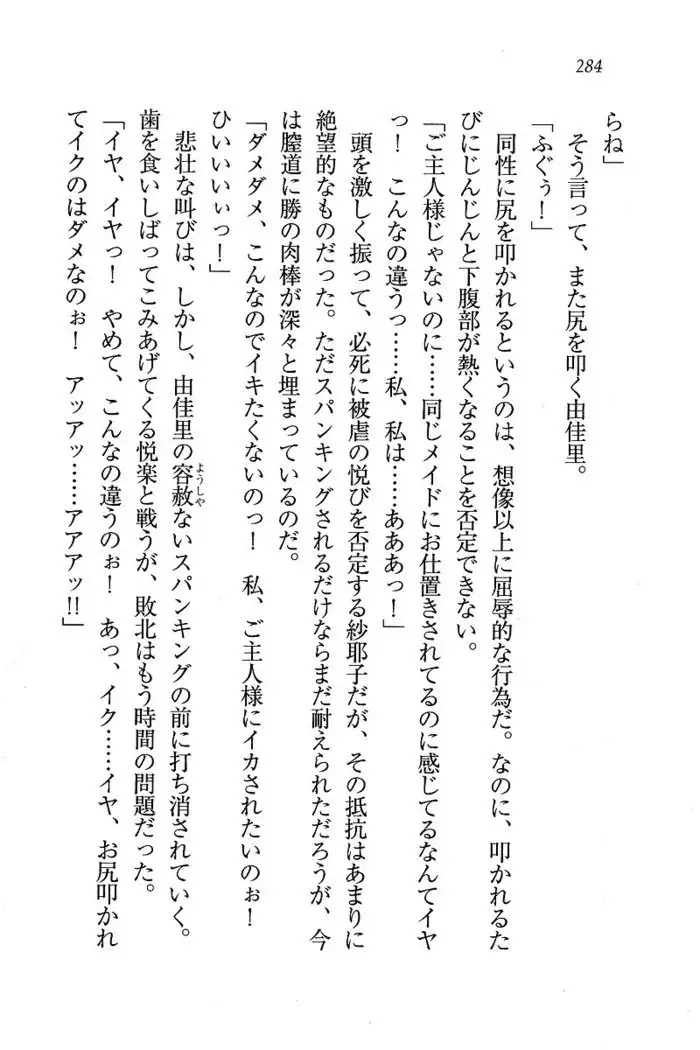 284
らね」
　そう言って、また尻を叩く由佳里。
「ふぐぅ！」
　同性に尻を叩かれるというのは、想像以上に屈辱的な行為だ。なのに、叩かれるた
びにじんじんと下腹部が熱くなることを否定できない。
「ご主人様じゃないのに……同じメイドにお仕置きされてるのに感じてるなんてイヤ
っ！　こんなの違うっ……私、私は……あああっ！」
　頭を激しく振って、必死に被虐の悦びを否定する紗耶子だが、その抵抗はあまりに
絶望的なものだった。ただスパンキングされるだけならまだ耐えられただろうが、今
は膣道に勝の肉棒が深々と埋まっているのだ。
「ダメダメ、こんなのでイキたくないのっ！　私、ご主人様にイカされたいのぉ！
ひいいいぃっ！」
　悲壮な叫びは、しかし、由佳里の容赦ようしゃないスパンキングの前に打ち消されていく。
歯を食いしばってこみあげてくる悦楽と戦うが、敗北はもう時間の問題だった。
「イヤ、イヤっ！　やめて、こんなの違うのぉ！　あっ、イク……イヤ、お尻叩かれ
てイクのはダメなのぉ！　アッアッ……アアアッ!!」